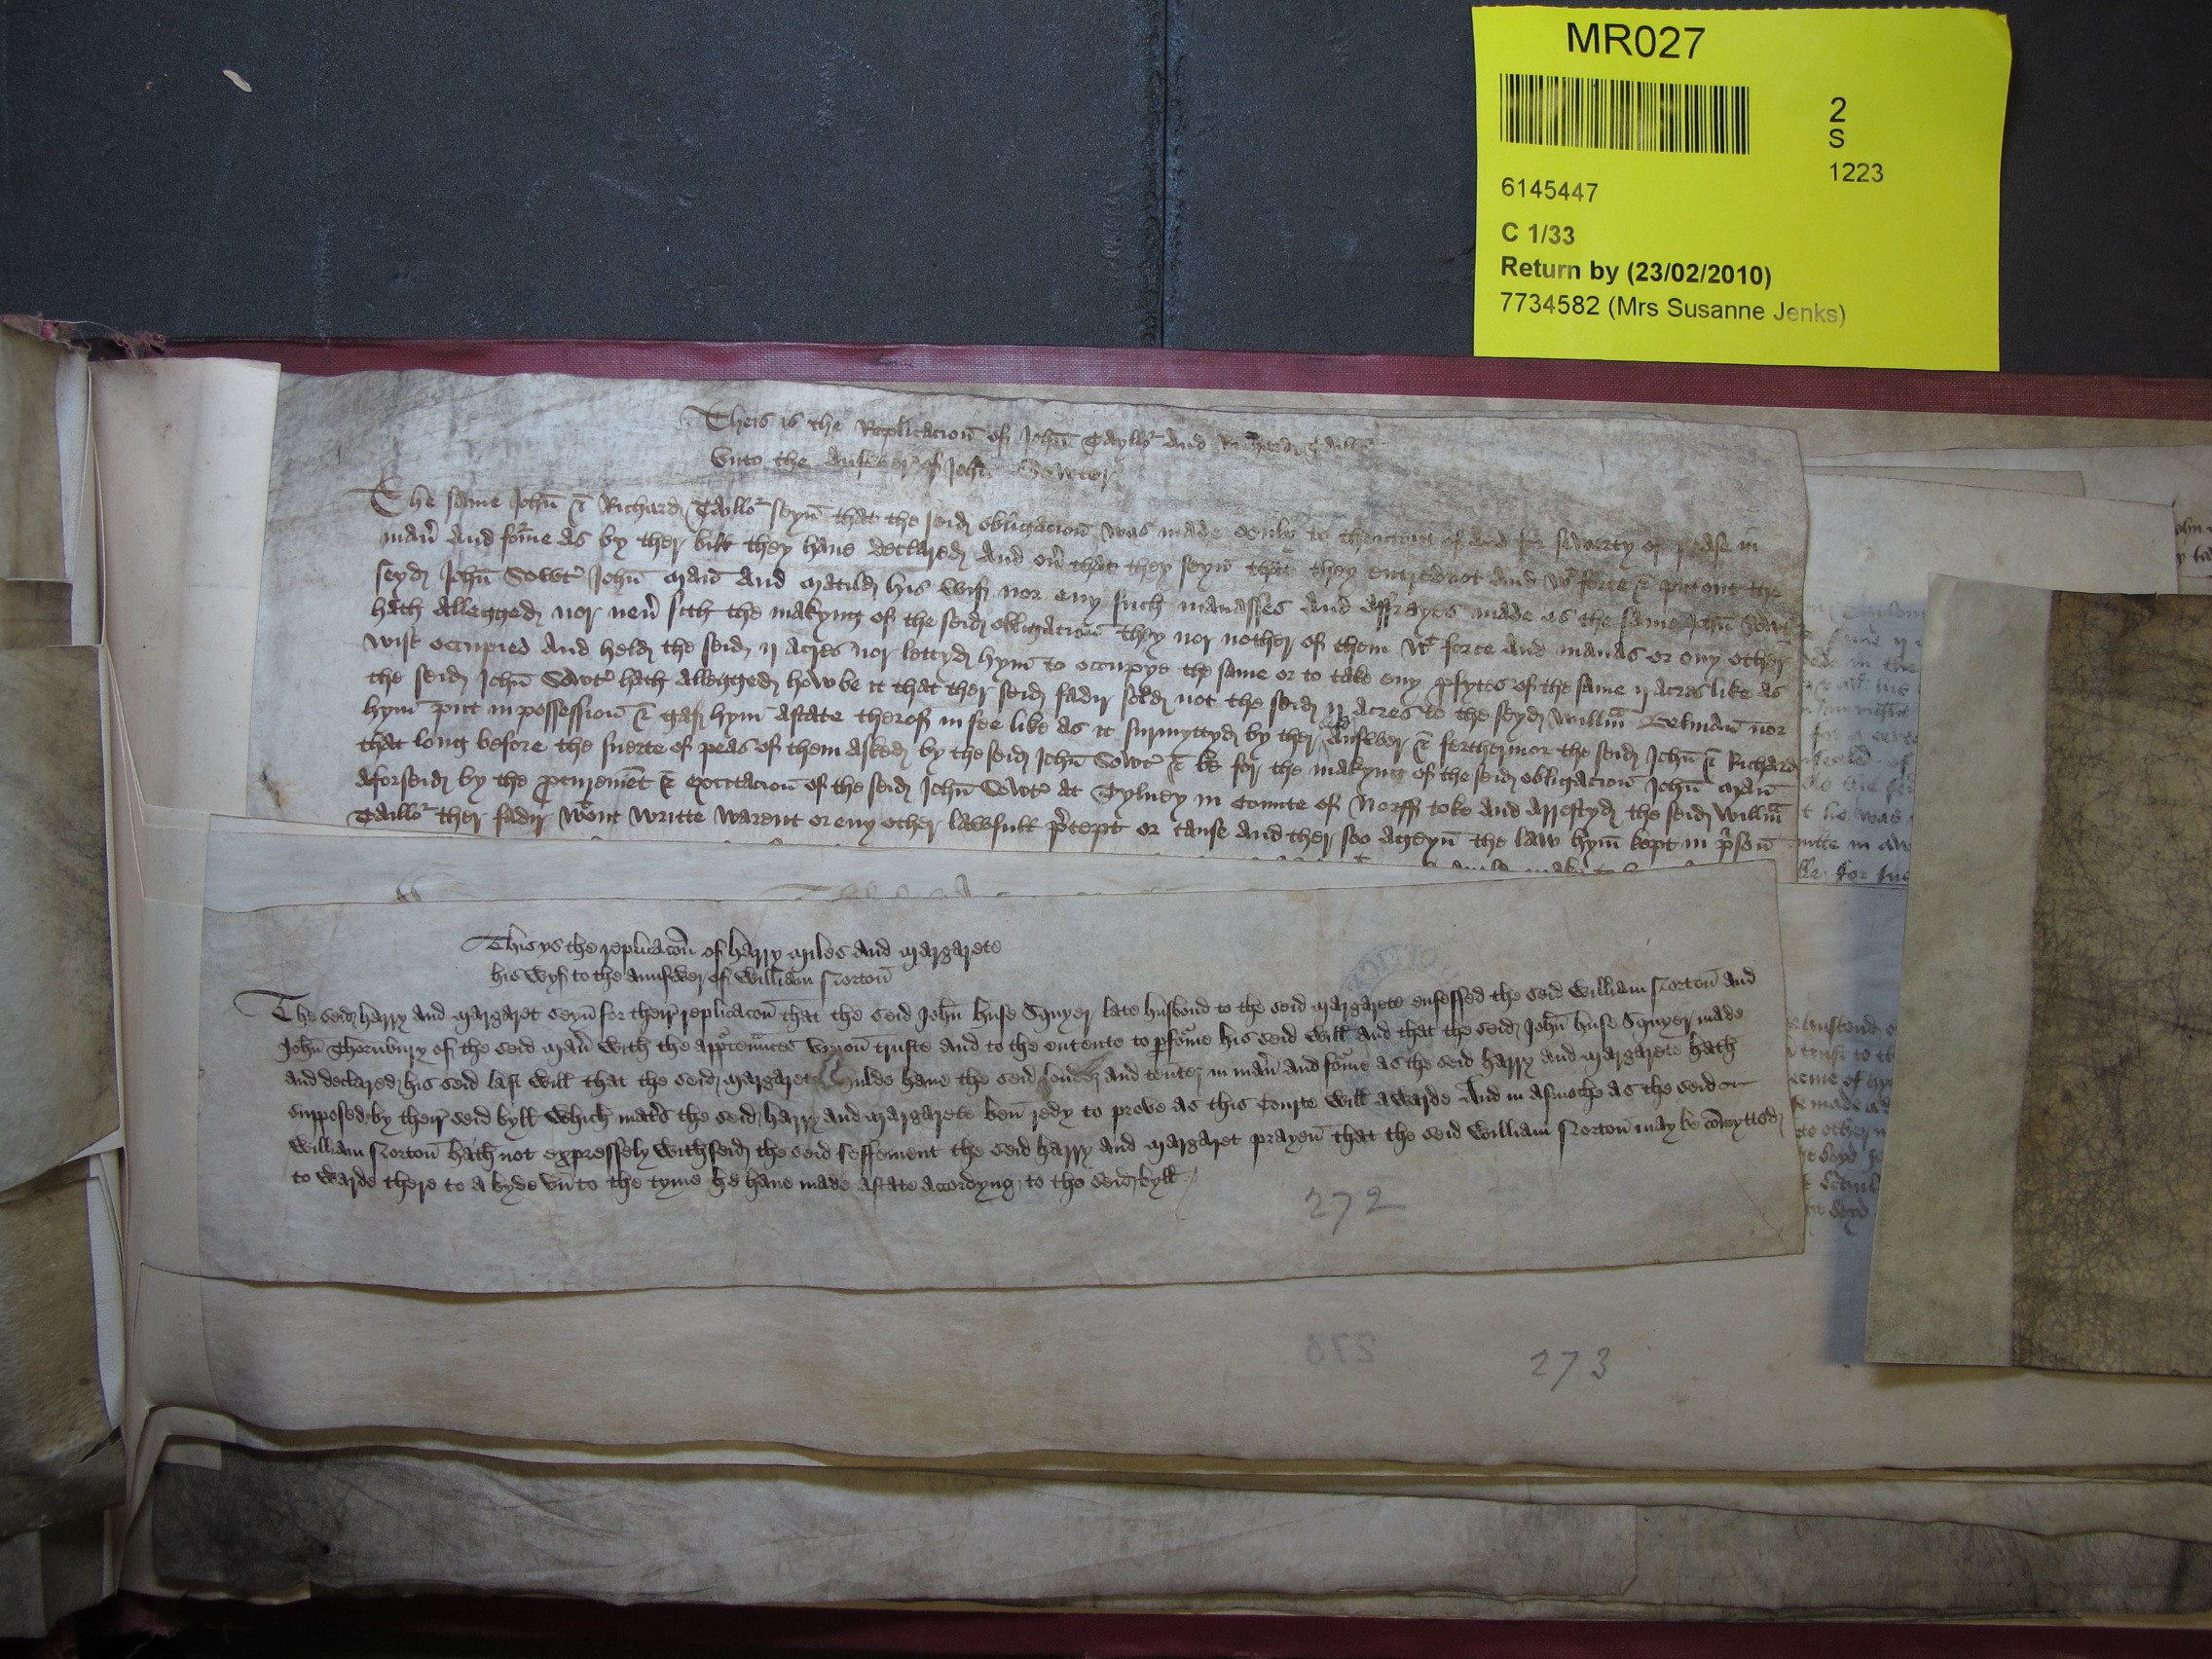 MR027
2
S
1223
6145447
C 1/33
Return by (23/02/2010)
7734582 (Mrs Susanne Jenks)
Theis is the Replicacion of John Tayllor and Richard Taillor
Vnto the Answer of John Sowter
The same John & Richard Taillor seyn that the seid obligacion was made oonly to thentent of and for suerty of pease in
maner and forme as by ther bill they haue declared And ouer that they seyn that they entred not and wt force & put out the
seyd John Sowter John Man and Matild his wif nor eny such manasses and affrayes made as the same John Sowter
hath allegged nor neuer sith the makyng of the seid obligacion they nor nother of them wt force and manas or eny other
wise occupied and held the seid ij acres nor lettyd hym to occupye the same or to take eny profytes of the same ij acres like as
the seid John Sowter hath allegged how be it that ther seid fadir sold not the seid ij acres to the seyd Willm Belman nor
hym put in possession & gaf hym astate therof in fee like as it surmyttyd by ther seid answer & ferthermor the seid John & Richard
that long before the suerte of peas of them asked by the seid John Sowter & be for the makyng of the seid obligacion John Man
aforseid by the procurement & excitacion of the seid John Sowter at Tylney in Counte of Norff toke and arrestyd the seid Willm
Taillor ther fadir wtout writte warent or eny other lawfull precept or cause and ther soo ageyn the law hym kept in prison
This ys the replicacon of Harry Miles and Margarete
his wyf to the Aunswer of William Norton
The seid Harry and Margaret seyn for their replicacon that the seid John Huse Squyer late husbond to the seid Margarete enfeffed the seid William Norton and
John Thornbury of the seid maner with the appertenances vpon truste and to the entente to performe his seid will And that the seid John Huse Squyer made
and declared his seid last will that the seid Margarete shulde haue the seid londes and tentes in maner and forme as the seid Harry and Margarete hath
supposed by their seid byll Which maters the seid Harry and Margarete ben redy to preve as this Courte will awarde And in asmoche as the seid
William Norton hath not expressely withseid the seid feffement the seid Harry and Margaret prayen that the seid William Norton may be comytted
to warde there to abyde vn to the tyme he haue made astate accordyng to the seid byll
272
273